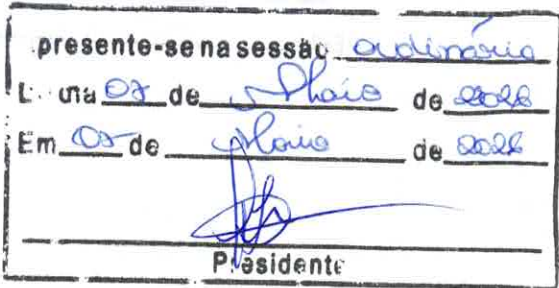 presente-se na sessão ordinária
dia 07 de Maio de 2026
Em 07 de Maio de 2026
Presidente